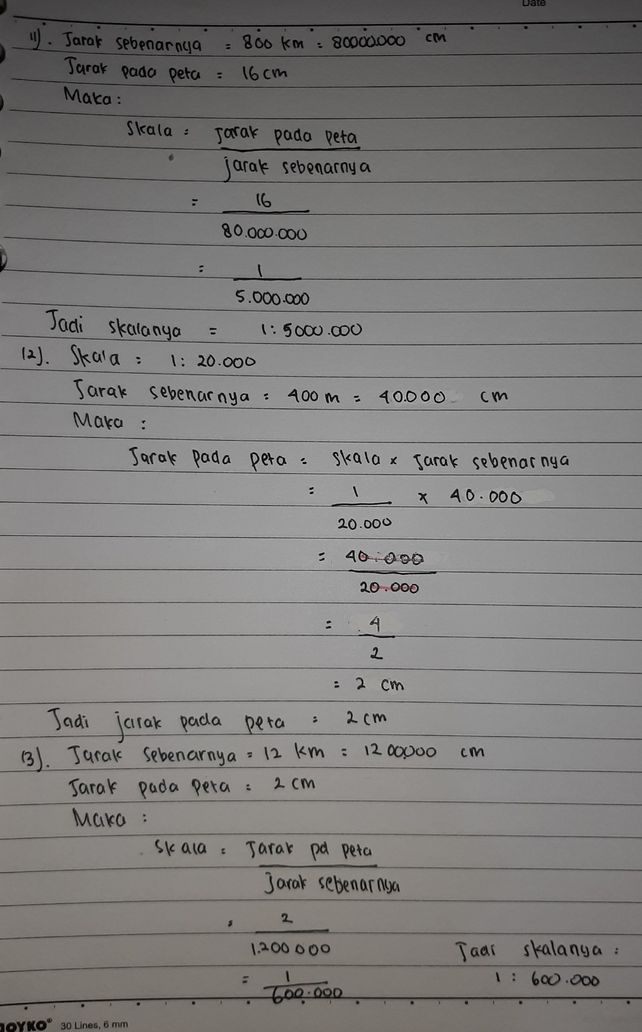 Date
11). Jarak sebenarnya = 800 km = 80000.000 cm
Jarak pada peta = 16 cm
Maka :
Skala = Jarak pada peta
jarak sebenarnya
= 16
80.000.000
= 1
5.000.000
Jadi skalanya = 1 : 5000.000
12). Skala = 1 : 20.000
Jarak sebenarnya = 400 m = 40.000 cm
Maka :
Jarak pada peta = skala x Jarak sebenarnya
= 1 x 40.000
20.000
= 40.000
20.000
= 4
2
= 2 cm
Jadi jarak pada peta = 2 cm
13). Jarak sebenarnya = 12 km = 1200.000 cm
Jarak pada peta = 2 cm
Maka :
Skala = Jarak pd peta
Jarak sebenarnya
= 2
1.200 000
Jadi skalanya :
= 1
600.000
1 : 600.000
JOYKO® 30 Lines, 6 mm